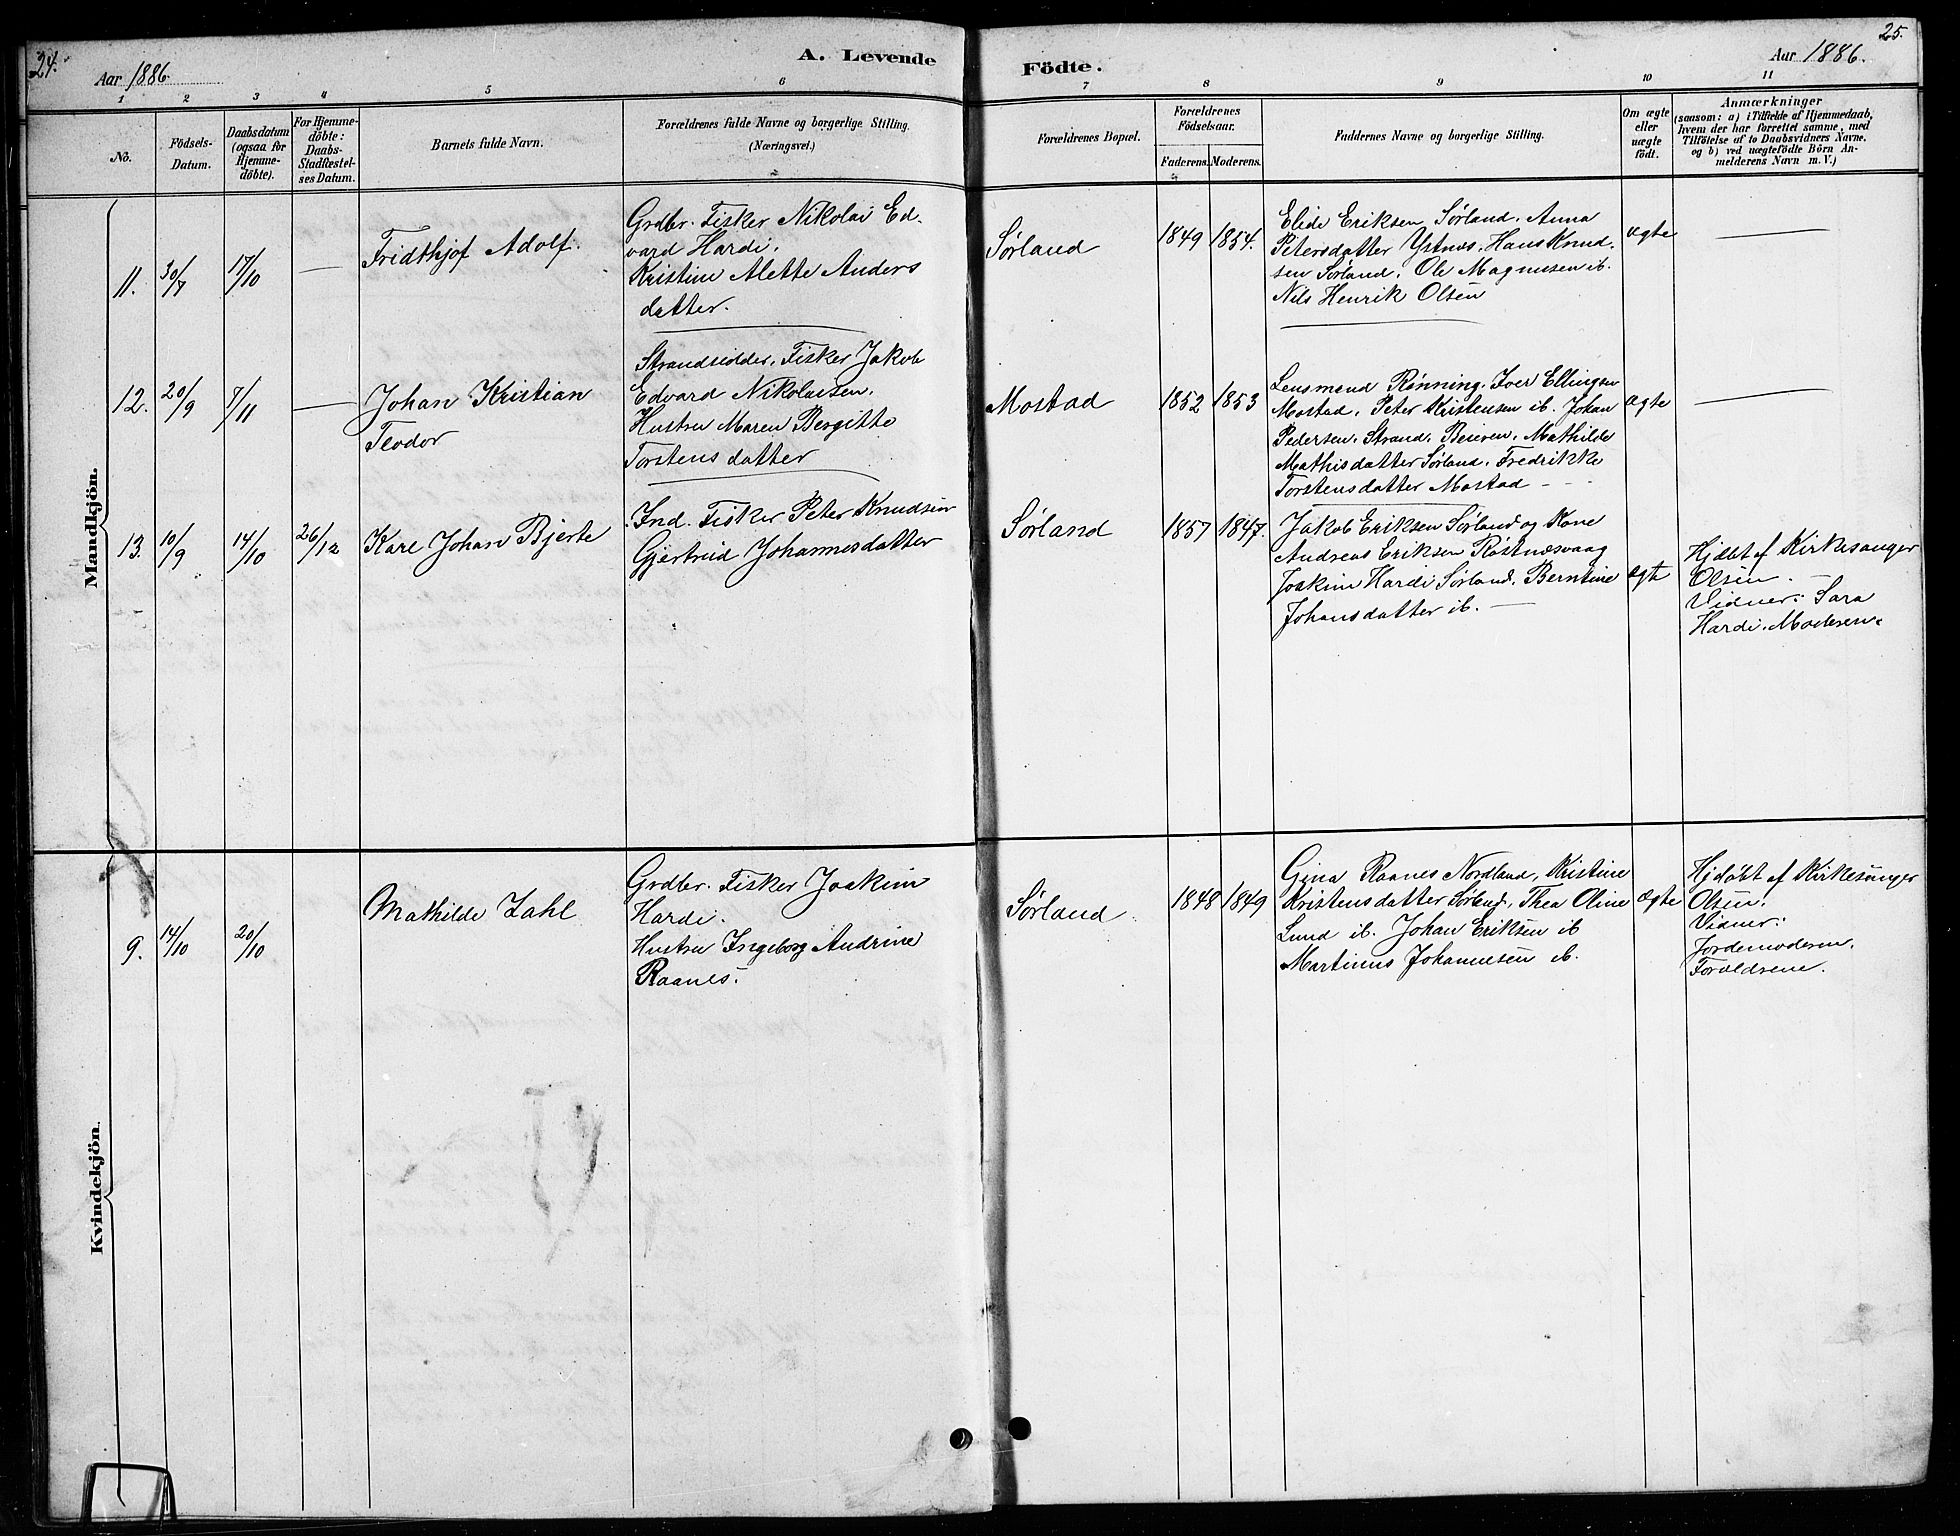 24.
Aar 1886.
A. Levende
1 2 3 4 5 6
No.
Födsels-
Datum.
Daabsdatum
(ogsaa for
Hjemme-
döbte).
For Hjemme-
döbte:
Daabs-
Stadfæstel-
ses Datum.
Barnets fulde Navn.
Forældrenes fulde Navne og borgerlige Stilling.
(Næringsvei.)
Mandkjön.
11.
30/7
17/10
—
Fridthjof Adolf.
Grdbr. Fisker Nikolai Ed-
vard Hardi.
Kristine Alette Anders
datter.
12.
20/9
7/11
—
Johan Kristian
Teodor
Strandsidder, Fisker Jakob
Edvard Nikolaisen.
Hustru Maren Bergitte
Torstensdatter
13.
10/9
14/10
26/12
Karl Johan Bjerte
Ind. Fisker Peter Knudsen
Gjertrud Johannesdatter
Kvindekjön.
9.
14/10
20/10
Mathilde Zahl
Grdbr. Fisker Joakim
Hardi.
Hustru Ingeborg Andrine
Raanes.
25.
Födte.
Aar 1886.
7 8 9 10 11
Forældrenes Bopæl.
Forældrenes
Födselsaar.
Faderens. Moderens.
Faddernes Navne og borgerlige Stilling.
Om ægte
eller
uægte
födt.
Anmærkninger
(saasom: a) i Tilfælde af Hjemmedaab,
hvem der har forrettet samme, med
Tilföielse af to Daabsvidners Navne.
og b) ved uægtefödte Börn An-
melderens Navn m. V.)
Sørland
1849 1854.
Elide Eriksen Sørland. Anna
Petersdatter Ystnes. Hans Knud-
sen Sørland. Ole Magnusen ib.
Nils Henrik Olsen
ægte
—
Mostad
1852 1853
Lensmand Rønning. Iver Ellingsen
Mostad. Peter Kristensen ib. Johan
Pedersen. Strand. Beieren. Mathilde
Mathisdatter Sørland. Fredrikke
Torstensdatter Mostad - - -
ægte
—
Sørland
1857 1847.
Jakob Eriksen Sørland og Kone
Andreas Eriksen Røstnesvaag
Joakim Hardi Sørland. Berntine
Johansdatter ib. —
ægte
Hjdøbt af Kirkesanger
Olsen. —
Vidner: Sara
Hardi. Moderen.
Sørland
1848 1849
Gina Raanes Nordland, Kristine
Kristensdatter Sørland, Thea Oline
Lund ib. Johan Eriksen ib
Martinus Johannesen ib.
Ægte
Hjdøbt af Kirkesanger
Olsen.
Vidner:
Jordemoderen.
Forældrene.